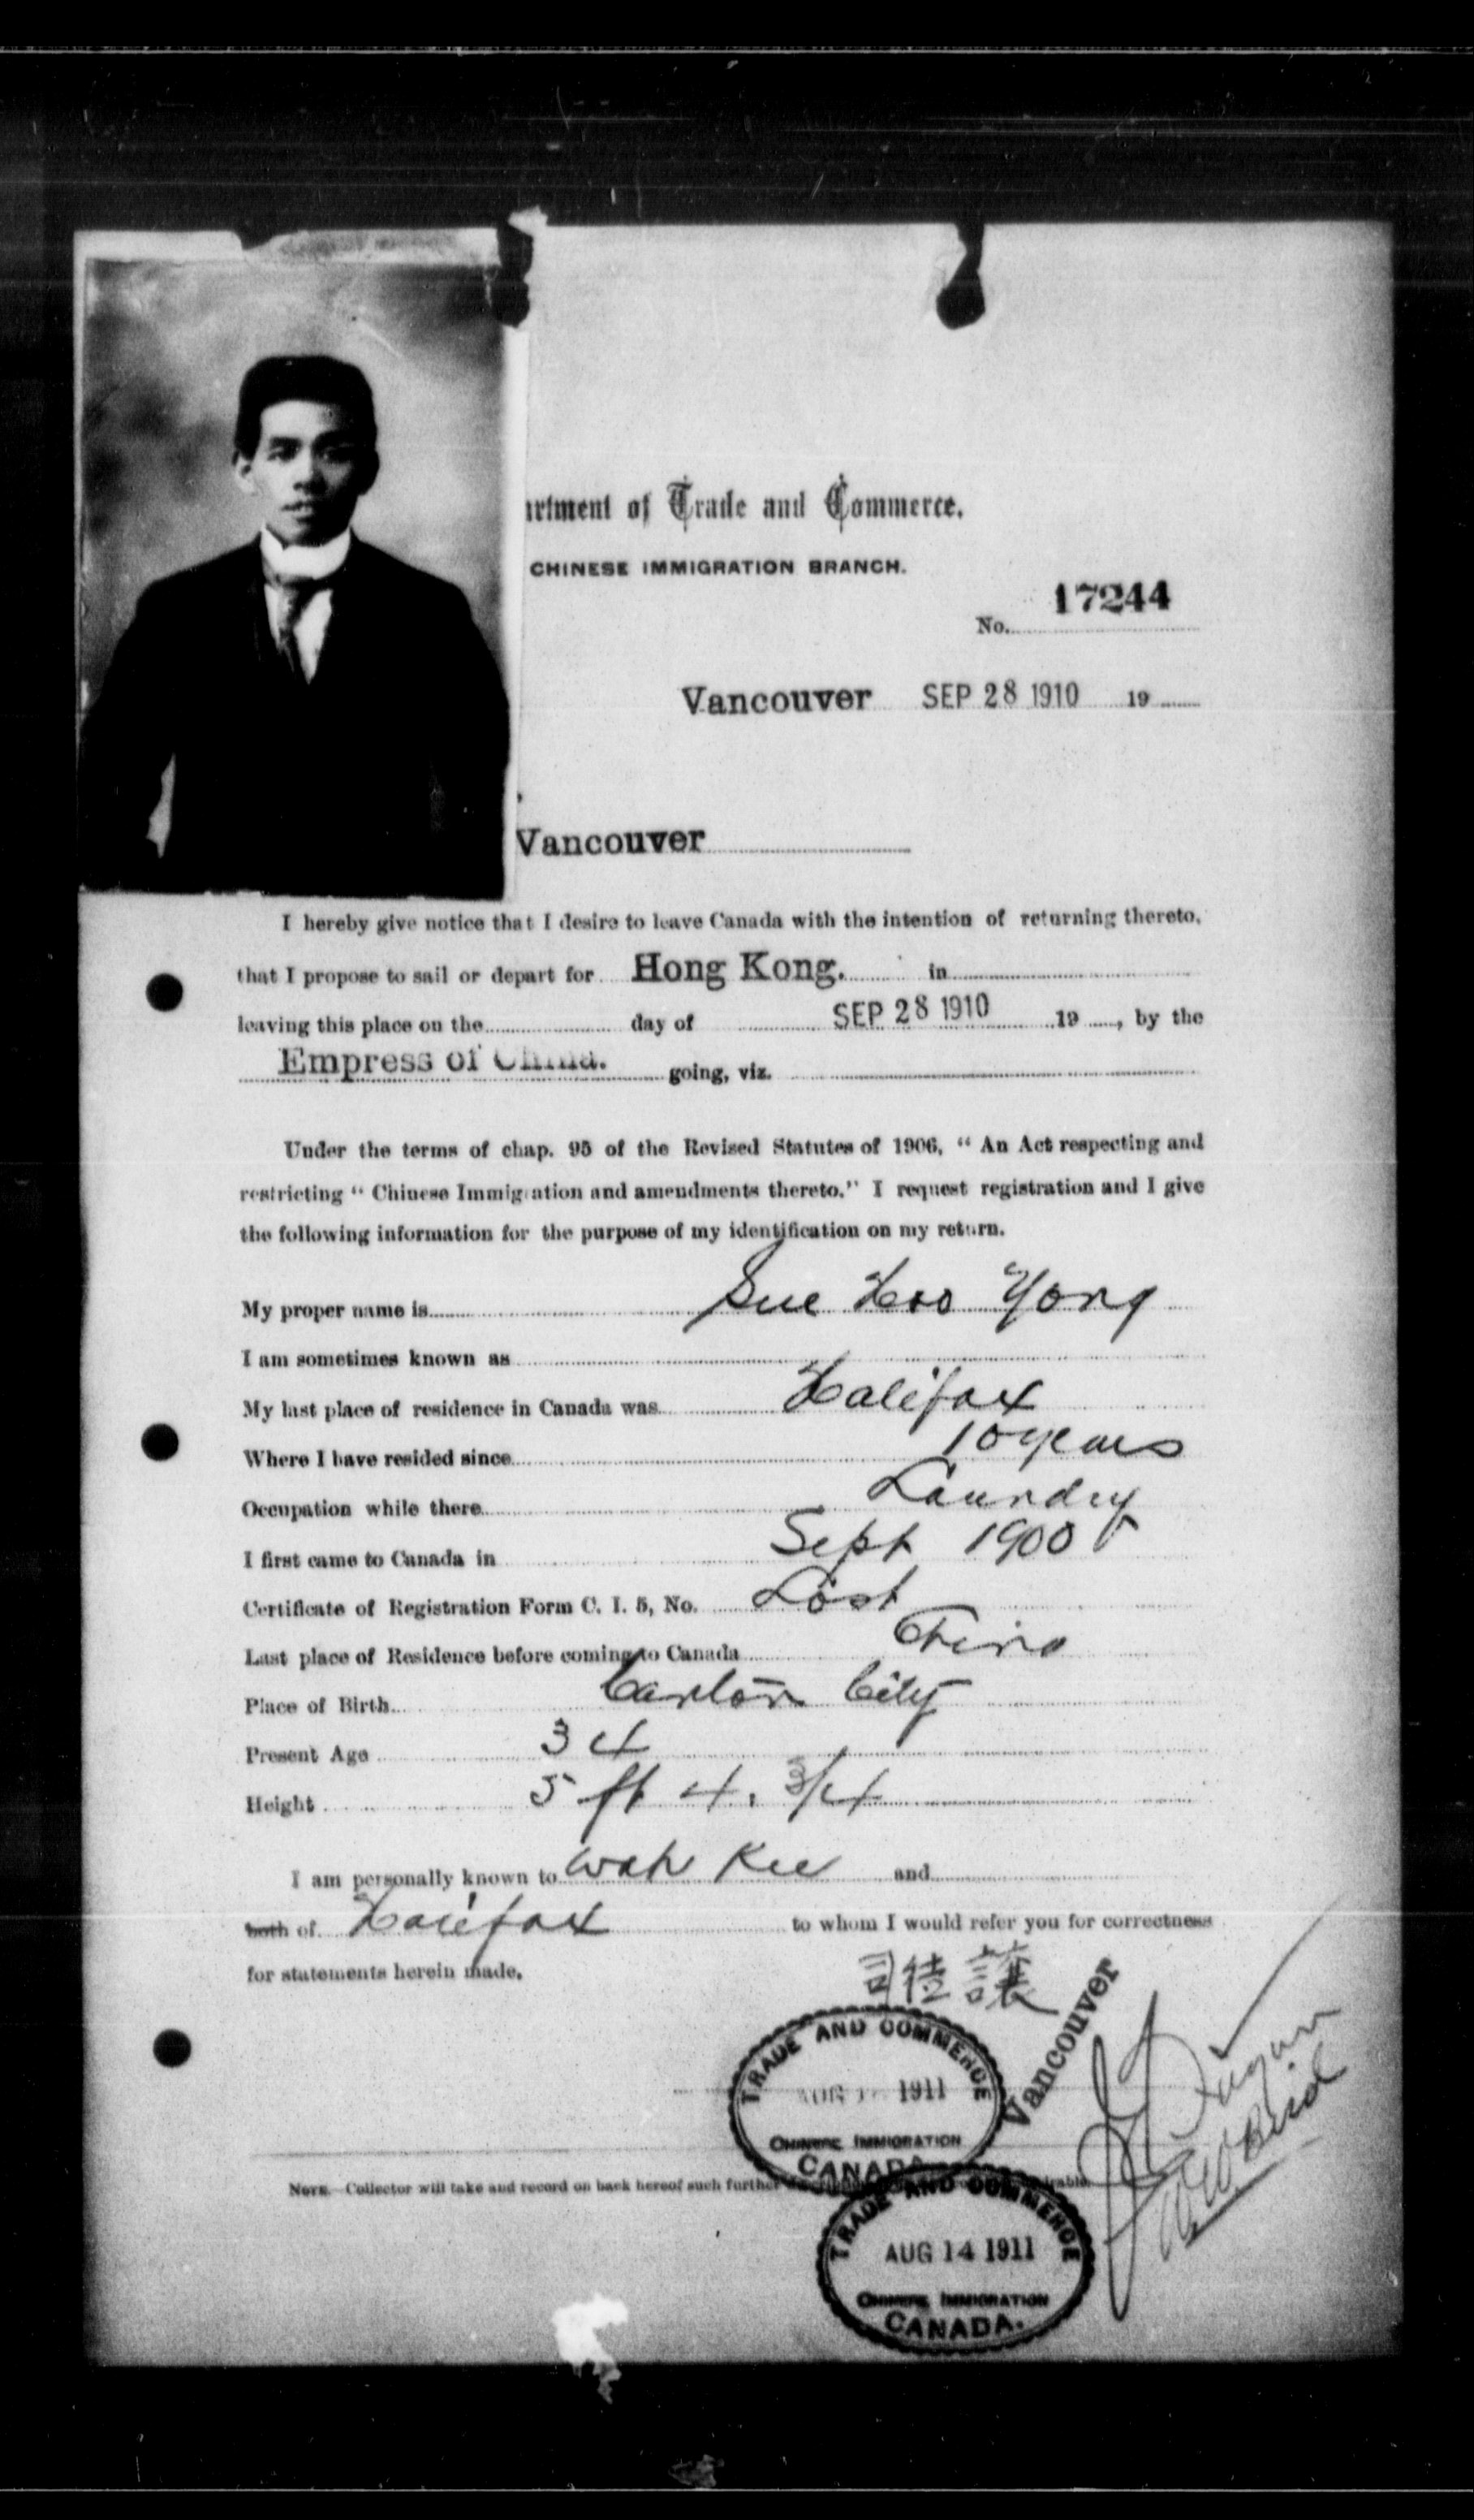 artment of Trade and Commerce.
CHINESE IMMIGRATION BRANCH.
No. 17244
Vancouver SEP 28 1910 19
Vancouver
I hereby give notice that I desire to leave Canada with the intention of returning thereto,
that I propose to sail or depart for Hong Kong. in
leaving this place on the day of SEP 28 1910 19 , by the
Empress of China. going, viz.
Under the terms of chap. 95 of the Revised Statutes of 1906, “ An Act respecting and
restricting “ Chinese Immigration and amendments thereto.” I request registration and I give
the following information for the purpose of my identification on my return.
My proper name is Sue Hoo Yong
I am sometimes known as
My last place of residence in Canada was Halifax
Where I have resided since 10 years
Occupation while there Laundry
I first came to Canada in Sept 1900
Certificate of Registration Form C. I. 5, No. Lost
Last place of Residence before coming to Canada China
Place of Birth Canton City
Present Age 34
Height 5 ft 4. 3/4
I am personally known to Wah Kee and
both of Halifax to whom I would refer you for correctness
for statements herein made.
司徒讓
TRADE AND COMMERCE
1911
CHINESE IMMIGRATION
CANADA
Vancouver
NOTE.—Collector will take and record on back hereof such further
TRADE AND COMMERCE
AUG 14 1911
CHINESE IMMIGRATION
CANADA.